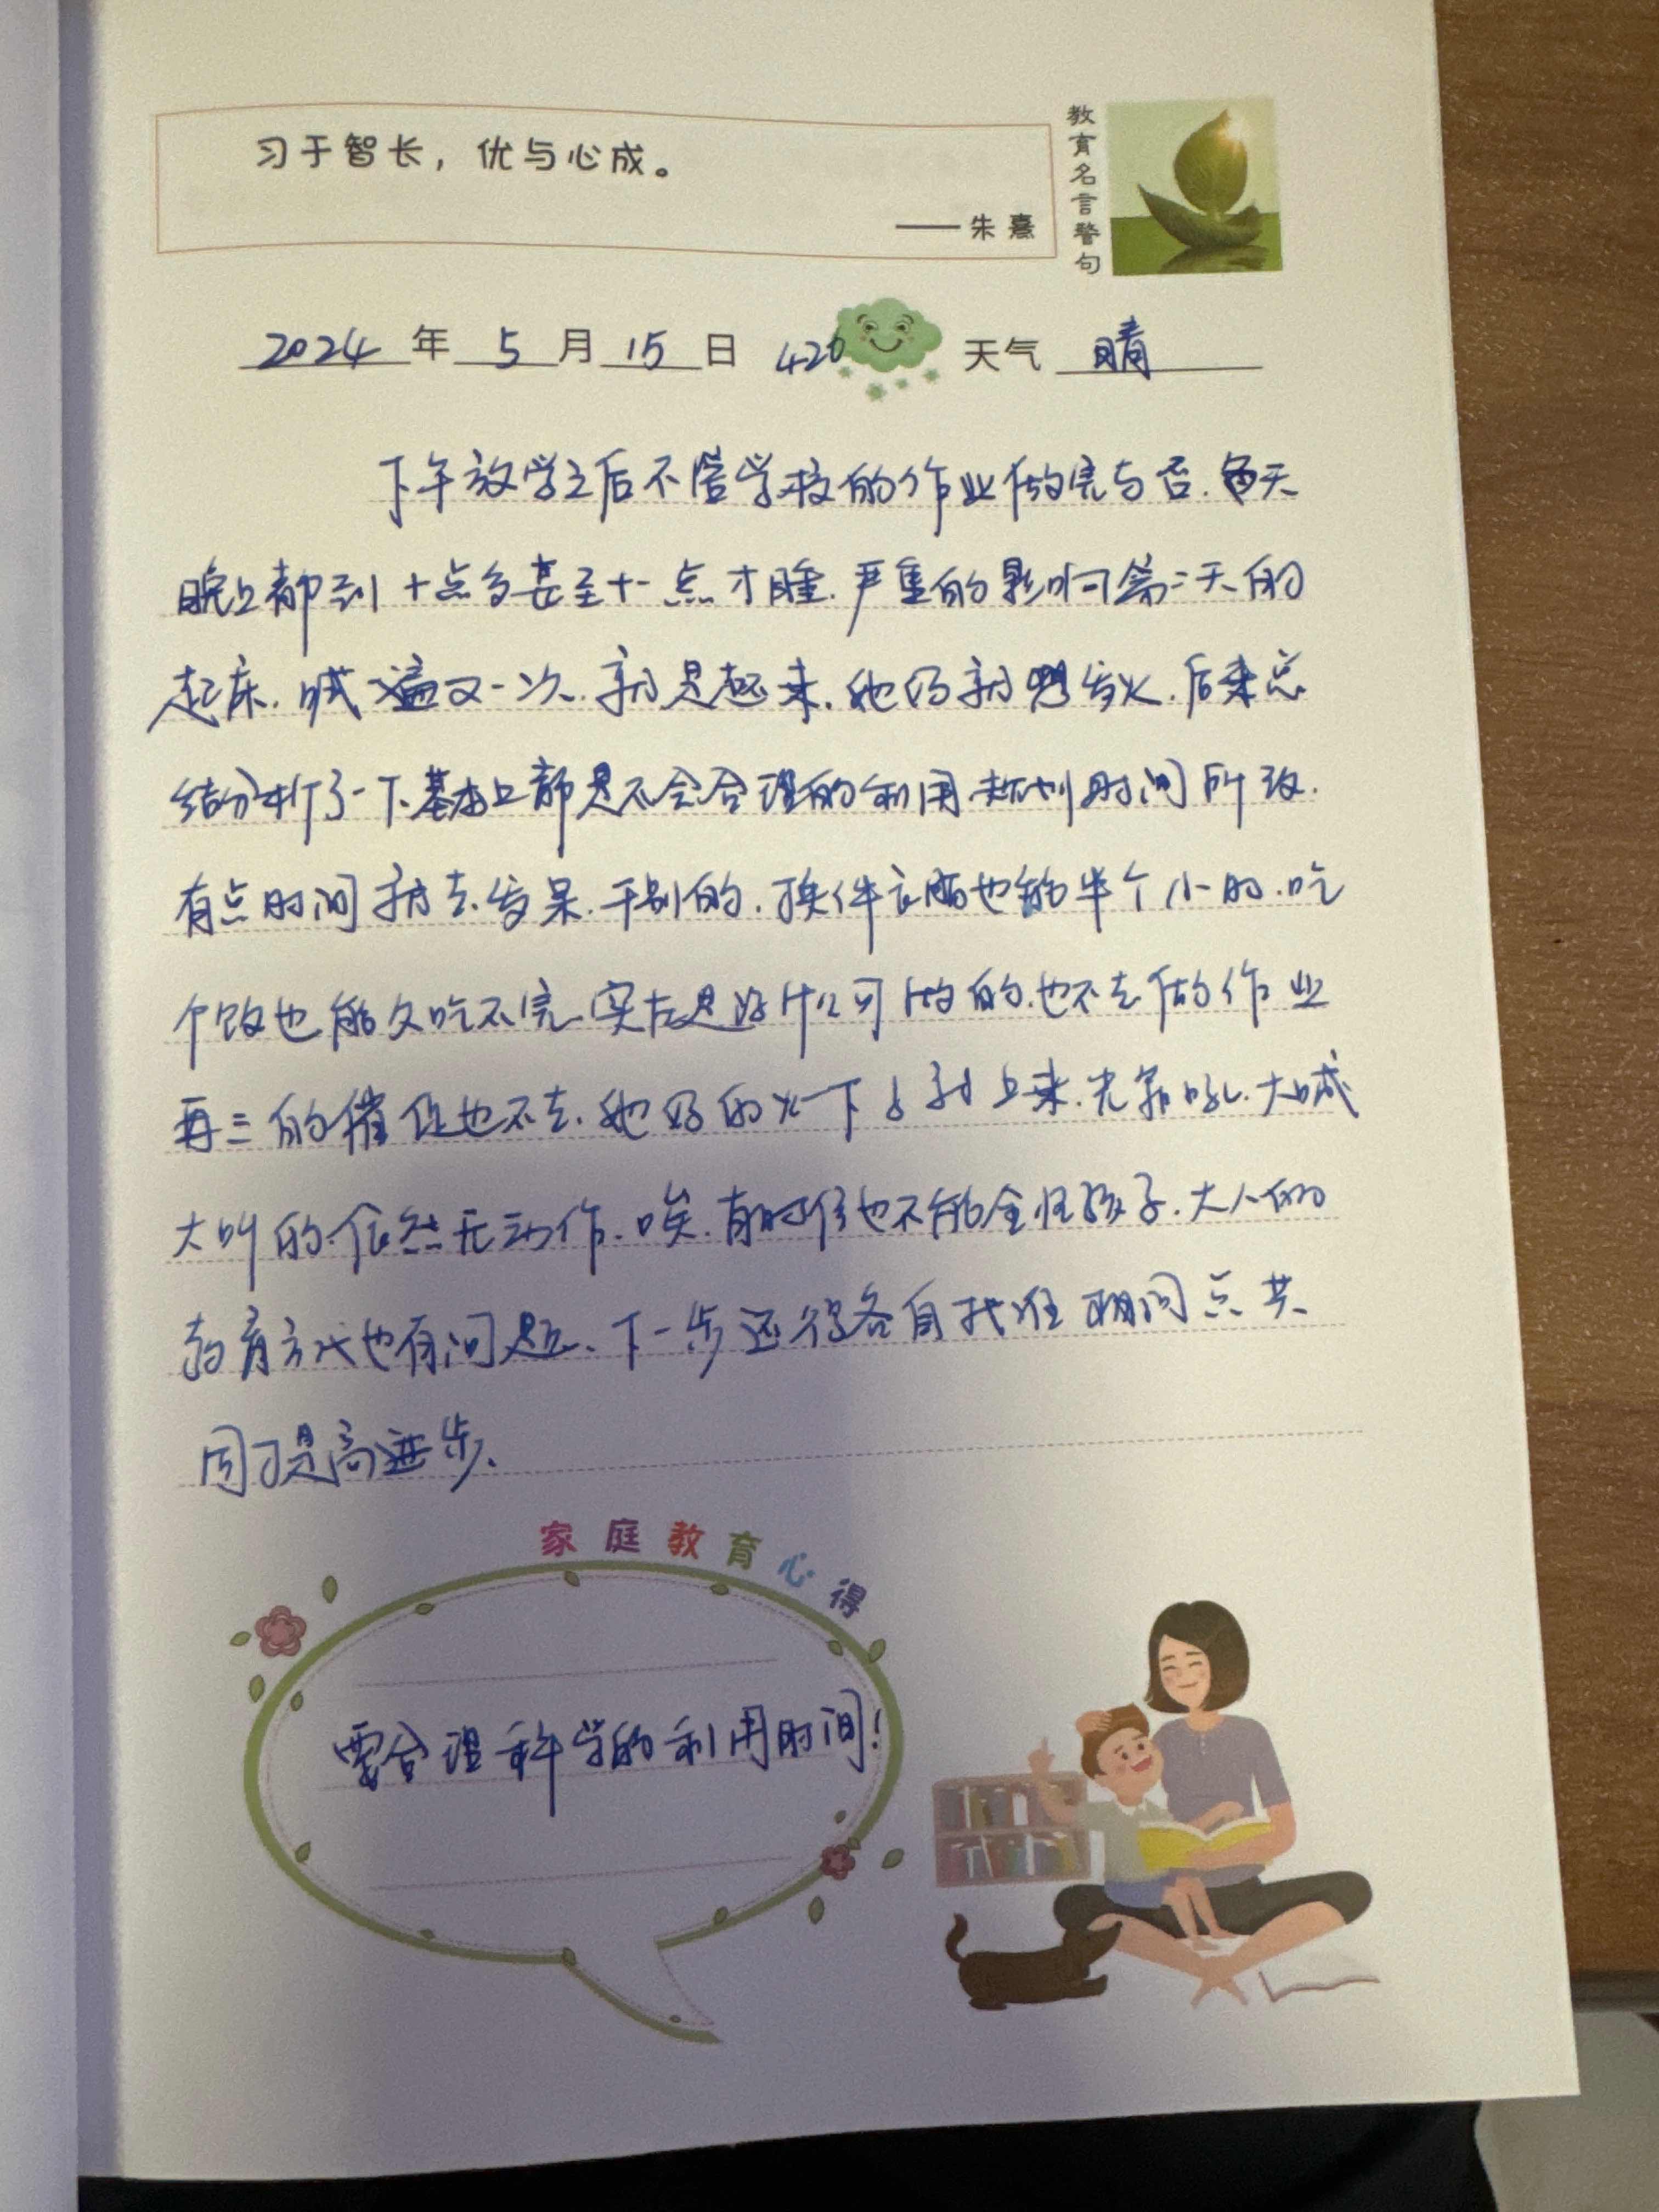 习于智长，优与心成。
——朱熹
教育名言警句
2024年5月15日 426 天气 晴
下午放学之后不管学校的作业做完与否.每天
晚上都到十点多甚至十一点才睡.严重的影响第二天的
起床.喊一遍又一次.就是起来.她仍就想发火.后来总
结分析了一下.基本上都是不会合理的利用.规划时间所致.
有点时间就去.发呆.干别的.换件衣服也能半个小时.吃
个饭也能久吃不完.实在是没什么可做的.也不去做作业
再三的催促也不去.她妈的火一下子到上来.光靠吼.大喊
大叫的.依然无动作.唉.有时候也不能全怪孩子.大人的
教育方式也有问题.下一步还得各自找准问点.共
同提高进步.
家庭教育心得
要合理科学的利用时间！